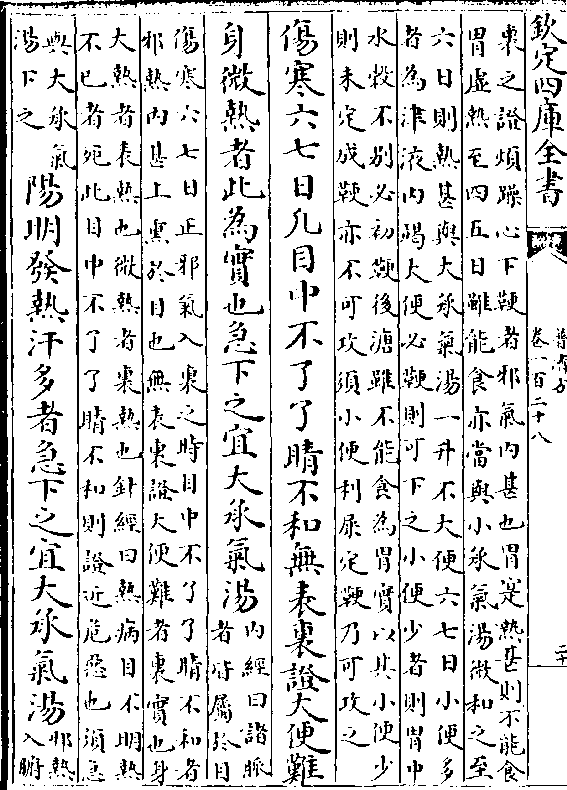 欽定四庫全書
普濟方
卷一百二十八
二十
裏之證煩躁心下鞕者邪氣内甚也胃寔熱甚則不能食
胃虚熱至四五日雖能食亦當與小承氣湯微和之至
六日則熱甚與大承氣湯一升不大便六七日小便多
者為津液内竭大便必鞕則可下之小便少者則胃中
水穀不别必初鞕後溏雖不能食為胃實以其小便少
則未定成鞕亦不可攻須小便利屎定鞕乃可攻之
傷寒六七日凡目中不了了睛不和無表裏證大便難
身微熱者此為實也急下之宜大承氣湯内經曰諸脈者皆屬於目
傷寒六七日正邪氣入裏之時目中不了了睛不和者
邪熱内甚上熏於目也無表裏證大便難者裏實也身
大熱者表熱也微熱者裏熱也針經曰熱病目不明熱
不已者死此目中不了了睛不和則證近危惡也須急
與大承氣湯下之陽明發熱汗多者急下之宜大承氣湯邪熱入腑